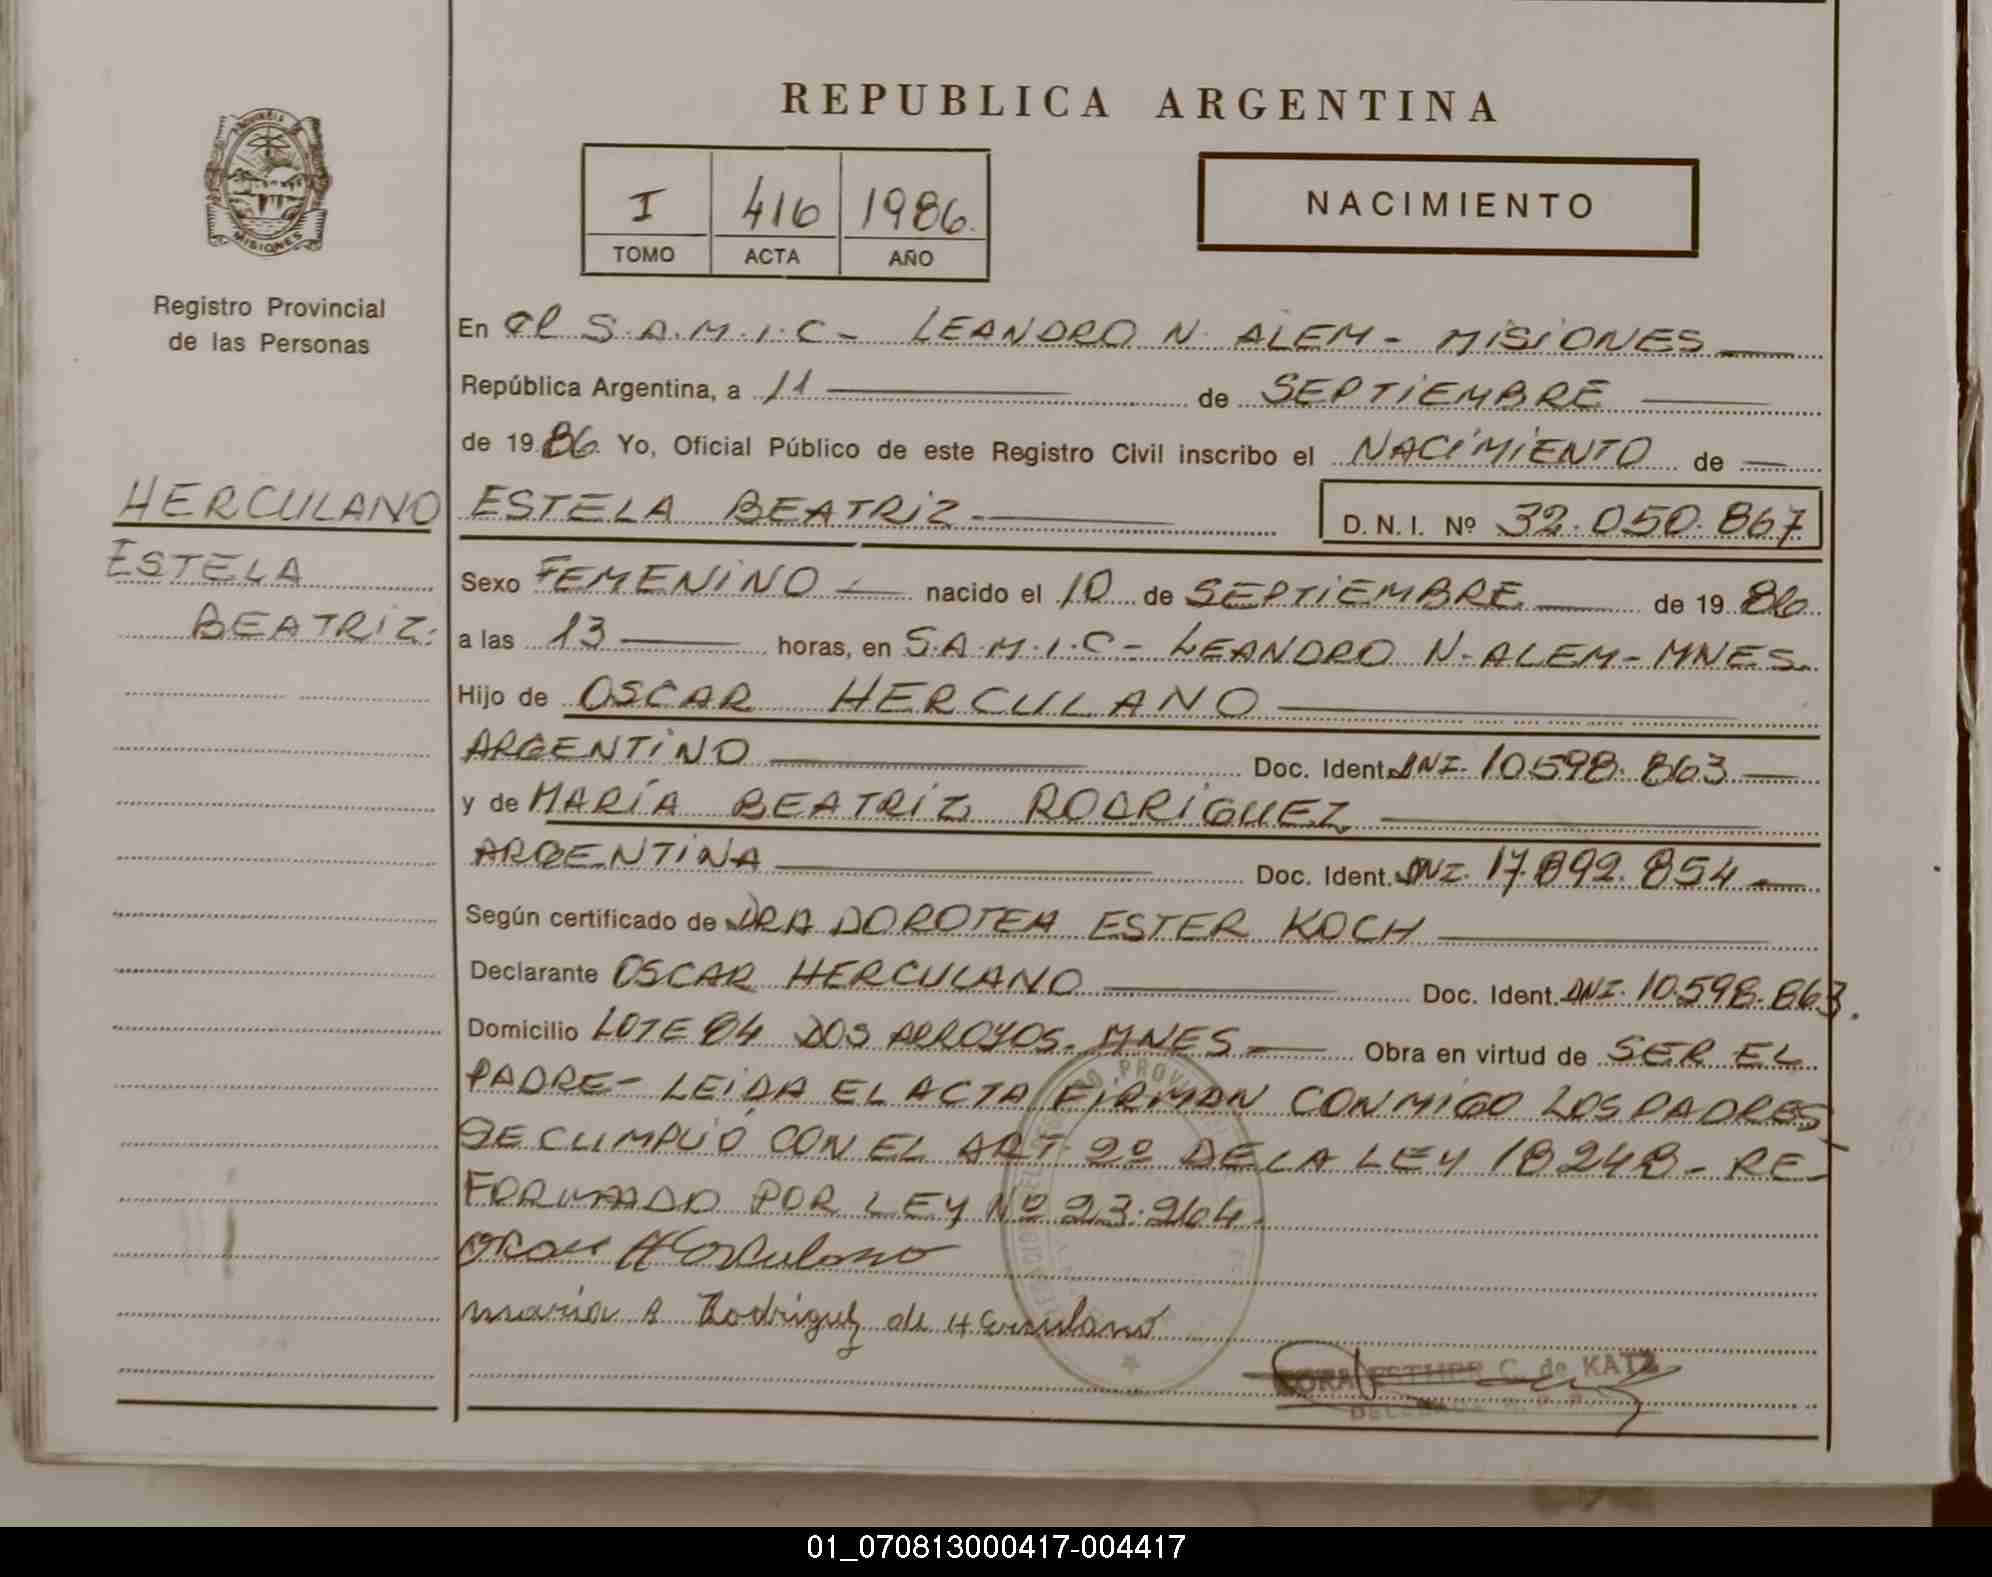 REPUBLICA ARGENTINA
PROVINCIA DE
MISIONES
Registro Provincial
de las Personas
I 416 1986.
TOMO ACTA AÑO
NACIMIENTO
En el S.A.M.I.C - LEANDRO N. ALEM - MISIONES
República Argentina, a 11 de SEPTIEMBRE
de 1986. Yo, Oficial Público de este Registro Civil inscribo el NACIMIENTO de
HERCULANO
ESTELA
BEATRIZ.
ESTELA BEATRIZ - D. N. I. Nº 32.050.867
Sexo FEMENINO nacido el 10 de SEPTIEMBRE de 1986.
a las 13 horas, en S.A.M.I.C - LEANDRO N. ALEM - MNES.
Hijo de OSCAR HERCULANO
ARGENTINO Doc. Ident. DNI. 10.598.863
y de MARÍA BEATRIZ RODRIGUEZ
ARGENTINA Doc. Ident. DNI. 17.892.854
Según certificado de DRA DOROTEA ESTER KOCH
Declarante OSCAR HERCULANO Doc. Ident. DNI. 10.598.863.
Domicilio LOTE 84 DOS ARROYOS. MNES Obra en virtud de SER EL
PADRE - LEIDA EL ACTA FIRMAN CONMIGO LOS PADRES
SE CUMPLIÓ CON EL ART. 2º DE LA LEY 18248 - RE-
FORMADO POR LEY Nº 23.264.
Oscar Herculano
maria B Rodriguez de Herculano
ESTHER C. de KATZ
01_070813000417-004417